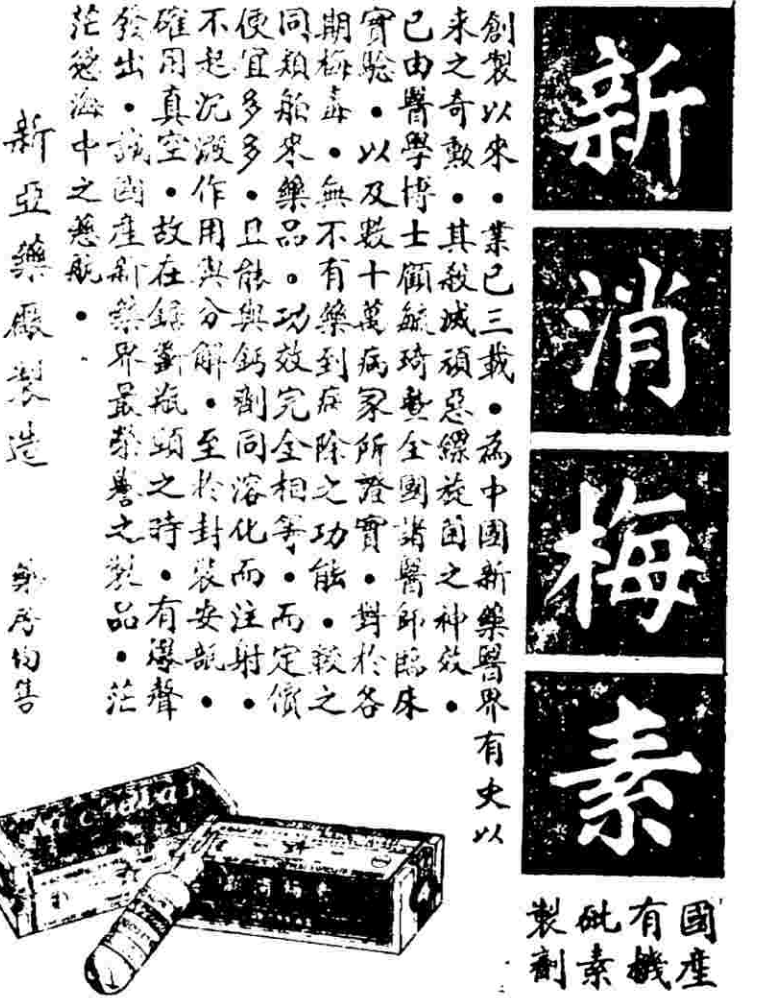 新消梅素
國產
有機
砒素
製劑
創製以來・業已三載・為中國新藥醫界有史以
來之奇勲・其殺滅頑惡螺旋菌之神效・
已由醫學博士顧毓琦暨全國諸醫師臨床
實驗・以及數十萬病家所證實・對於各
期梅毒・無不有藥到病除之功能・較之
同類舶來藥品。功效完全相等・而定價
便宜多多・且能與鈣劑同溶化而注射・
不起沉澱作用與分解・至於封裝安瓿・
確用真空・故在鋸斷瓶頭之時・有爆聲
發出・誠國產新藥界最榮譽之製品・茫
茫慾海中之慈航・
新亞藥廠製造 藥房均售